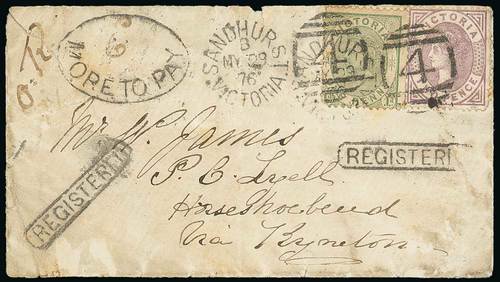 6
MORE TO PAY
SANDHURST
B
MY 29
76
VICTORIA
VICTORIA
PENNY
VICTORIA
PENCE
4
Mr W. James
REGISTERED
P. C. Lyell
REGISTERED
Horseshoebend
Via Kyneton